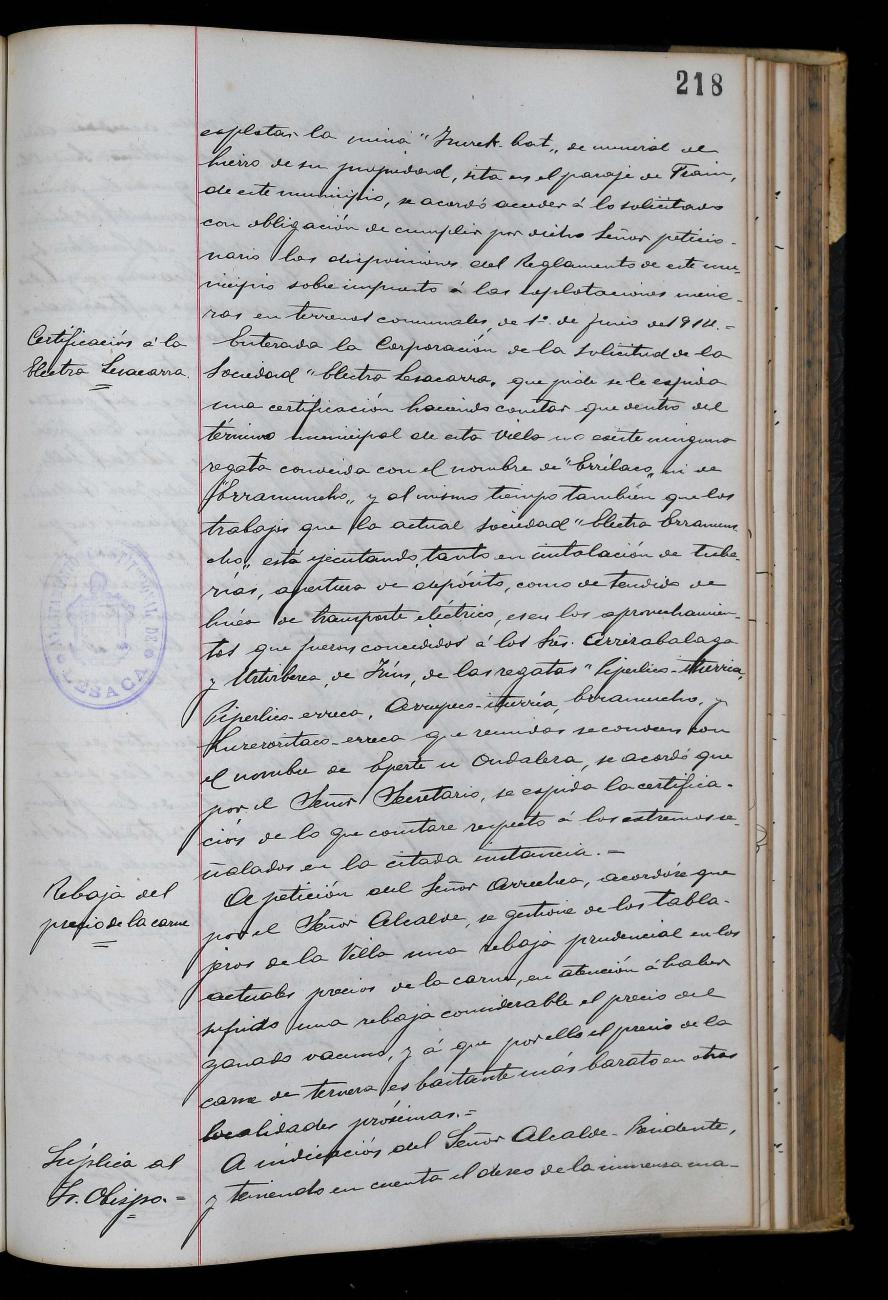 218
esplotar la mina "Irurek-bat„ de mineral de
hierro de su propiedad, sita en el paraje de Frain,
de este municipio, se acordó acceder á lo solicitado
con obligación de cumplir por dicho Señor peticio-
nario las disposiciones del Reglamento de este mu-
nicipio sobre impuesto á las esplotaciones mine-
ras en terrenos comunales, de 1º de Junio de 1914.=
Certificación á la
Electra Lesacarra.
Enterada la Corporación de la solicitud de la
Sociedad "Electra Lesacarra„ que pide se le espida
una certificación haciendo constar que dentro del
término municipal de esta Villa no existe ninguna
regata conocida con el nombre de "Errilaco„ ni de
"Erramuncho„ y al mismo tiempo también que los
trabajos que la actual sociedad "Electra Erramun
cho„ está ejecutando, tanto en instalación de tube-
rías, apertura de depósito, como de tendido de
línea de transporte eléctrico, es en los aprovechamien-
tos que fueron concedidos á los Srs. Arrizabalaga
y Urtizberea, de Irún, de las regatas "Piperlico-iturria,
Piperlico-erreca, Arrupeco-iturría, Erramucho, y
que reunidas se conocen con
el nombre de Eperte u Ondalera, se acordó que
por el Señor Secretario, se espida la certifica-
ción de lo que constare respecto á los estremos se-
ñalados en la citada instancia.=
Rebaja del
precio de la carne
A petición del Señor Arrechea, acordóse que
por el Señor Alcalde, se gestione de los tabla-
jeros de la Villa una rebaja prudencial en los
actuales precios de la carne, en atención á haber
sufrido una rebaja considerable el precio del
ganado vacuno, y á que por ello el precio de la
carne de ternera es bastante más barato en otras
localidades prósimas.=
Súplica al
Sr. Obispo.=
A indicación del Señor Alcalde-Presidente,
y teniendo en cuenta el deseo de la inmensa ma-
AYUNTAMIENTO CONSTITUCIONAL DE
LESACA